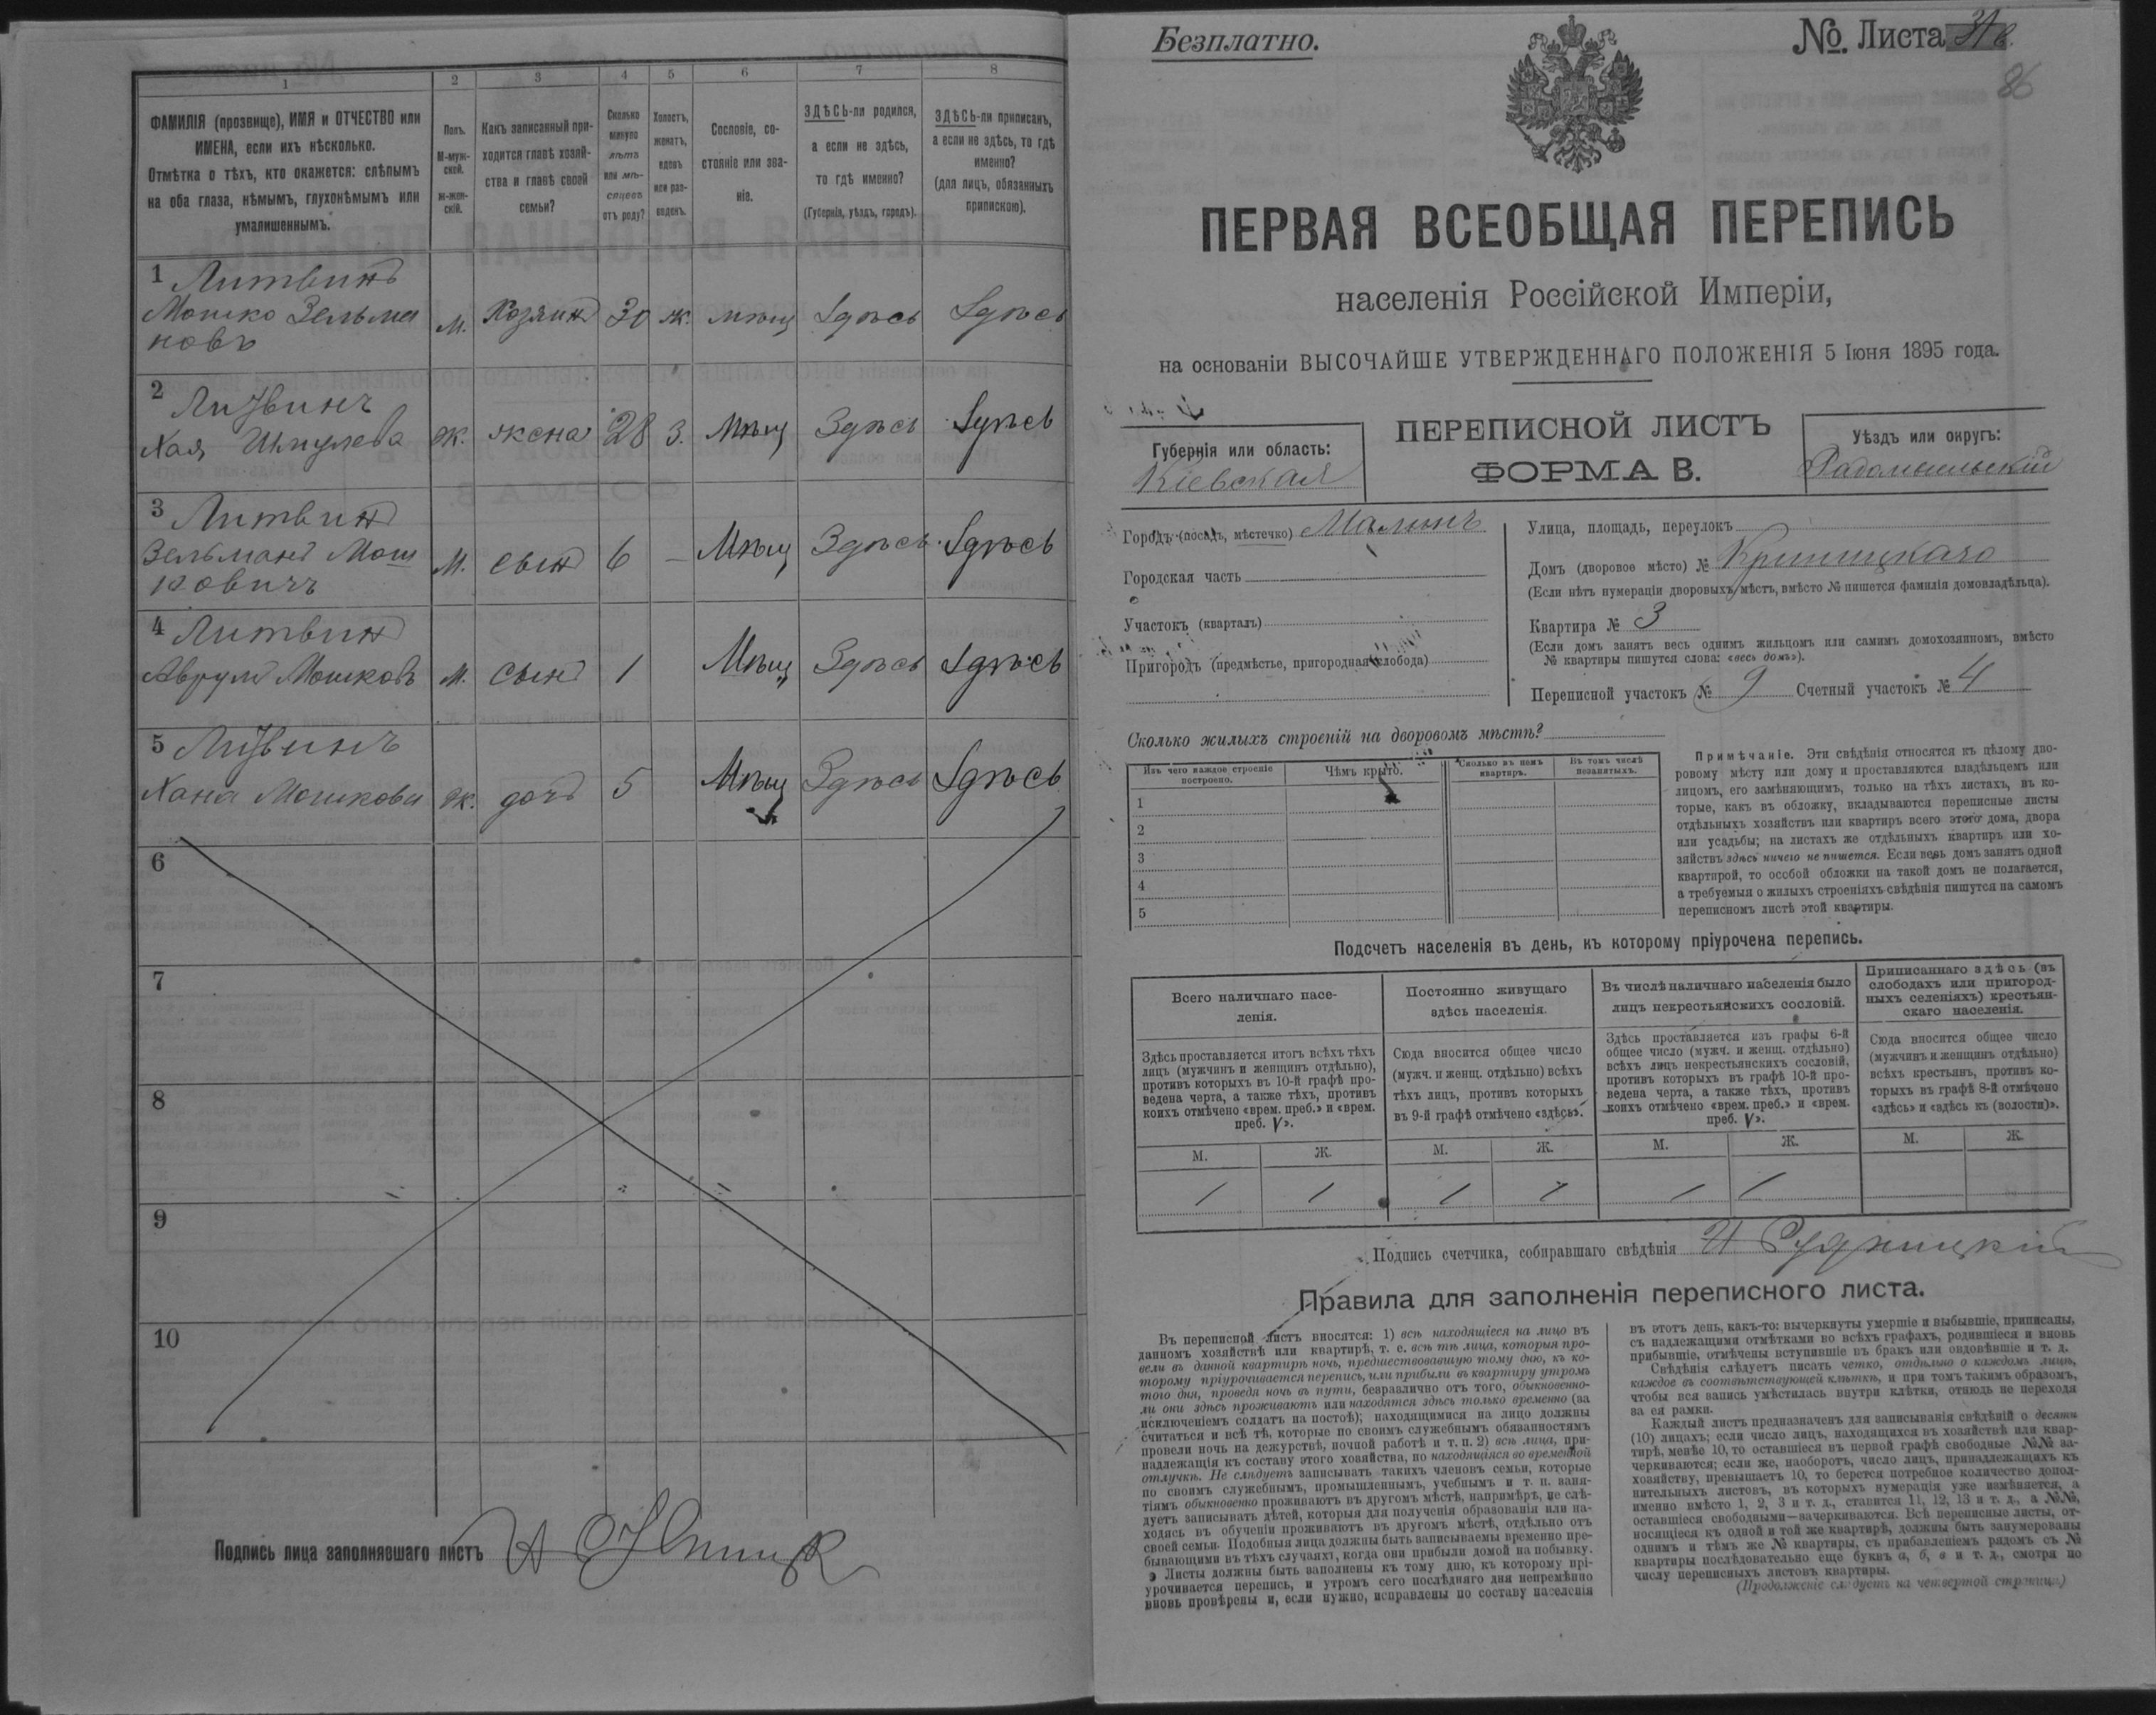 1 2 3 4 5 6 7 8
ФАМИЛІЯ (прозвище), ИМЯ и ОТЧЕСТВО или
ИМЕНА, если ихъ нѣсколько.
Отмѣтка о тѣхъ, кто окажется: слѣпымъ
на оба глаза, нѣмымъ, глухонѣмымъ или
умалишеннымъ.
Полъ.
М-муж-
ской.
Ж-жен-
скій.
Какъ записанный при-
ходится главѣ хозяй-
ства и главѣ своей
семьи?
Сколько
минуло
лѣтъ
или мѣ-
сяцевъ
отъ роду?
Холостъ,
женатъ,
вдовъ
или раз-
веденъ.
Сословіе, со-
стояніе или зва-
ніе.
ЗДѢСЬ-ли родился,
а если не здѣсь,
то гдѣ именно?
(Губернія, уѣздъ, городъ).
ЗДѢСЬ-ли приписанъ,
а если не здѣсь, то гдѣ
именно?
(для лицъ, обязанныхъ
припискою).
1 Литвинъ
Мошко Зельма
новъ
м. Хозяинъ 30 ж. мѣщ Здѣсь Здѣсь
2 Литвинъ
Хая Шмулева ж. жена 28 з. Мѣщ Здѣсь Здѣсь
3 Литвинъ
Зельманъ Мош
ковичъ
м. сынъ 6 — Мѣщ Здѣсь Здѣсь
4 Литвинъ
Аврумъ Мошковъ м. сынъ 1 Мѣщ Здѣсь Здѣсь
5 Литвинъ
Хана Мошкова ж. дочь 5 Мѣщ Здѣсь Здѣсь
6
7
8
9
10
Подпись лица заполнявшаго листъ
Безплатно.
№. Листа
86
ПЕРВАЯ ВСЕОБЩАЯ ПЕРЕПИСЬ
населенія Россійской Имперіи,
на основаніи ВЫСОЧАЙШЕ УТВЕРЖДЕННАГО ПОЛОЖЕНІЯ 5 Іюня 1895 года.
Губернія или область:
Кіевская
ПЕРЕПИСНОЙ ЛИСТЪ
ФОРМА В.
Уѣздъ или округъ:
Радомысльскій
Городъ (посадъ, мѣстечко) Малинъ
Городская часть
Участокъ (кварталъ)
Пригородъ (предмѣстье, пригородная слобода)
Улица, площадь, переулокъ
Домъ (дворовое мѣсто) №
(Если нѣтъ нумераціи дворовыхъ мѣстъ, вмѣсто № пишется фамилія домовладѣльца).
Квартира № 3
(Если домъ занятъ весь однимъ жильцомъ или самимъ домохозяиномъ, вмѣсто
№ квартиры пишутся слова: «весь домъ»).
Переписной участокъ № 9 Счетный участокъ № 4
Сколько жилыхъ строеній на дворовомъ мѣстѣ?
Изъ чего каждое строеніе
построено.
Чѣмъ крыто.
Сколько въ немъ
квартиръ.
Въ томъ числѣ
незанятыхъ.
1
2
3
4
5
Примѣчаніе. Эти свѣдѣнія относятся къ цѣлому дво-
ровому мѣсту или дому и проставляются владѣльцемъ или
лицомъ, его замѣняющимъ, только на тѣхъ листахъ, въ ко-
торые, какъ въ обложку, вкладываются переписные листы
отдѣльныхъ хозяйствъ или квартиръ всего этого дома, двора
или усадьбы; на листахъ же отдѣльныхъ квартиръ или хо-
зяйствъ здѣсь ничего не пишется. Если весь домъ занятъ одной
квартирой, то особой обложки на такой домъ не полагается,
а требуемыя о жилыхъ строеніяхъ свѣдѣнія пишутся на самомъ
переписномъ листѣ этой квартиры.
Подсчетъ населенія въ день, къ которому пріурочена перепись.
Всего наличнаго насе-
ленія.
Здѣсь проставляется итогъ всѣхъ тѣхъ
лицъ (мужчинъ и женщинъ отдѣльно),
противъ которыхъ въ 10-й графѣ про-
ведена черта, а также тѣхъ, противъ
коихъ отмѣчено «врем. преб.» и «врем.
преб. V».
Постоянно живущаго
здѣсь населенія.
Сюда вносится общее число
(мужч. и женщ. отдѣльно) всѣхъ
тѣхъ лицъ, противъ которыхъ
въ 9-й графѣ отмѣчено «здѣсь».
Въ числѣ наличнаго населенія было
лицъ некрестьянскихъ сословій.
Здѣсь проставляется изъ графы 6-й
общее число (мужч. и женщ. отдѣльно)
всѣхъ лицъ некрестьянскихъ сословій,
противъ которыхъ въ графѣ 10-й про-
ведена черта, а также тѣхъ, противъ
коихъ отмѣчено «врем. преб.» и «врем.
преб. V».
Приписаннаго здѣсь (въ
слободахъ или пригород-
ныхъ селеніяхъ) крестьян-
скаго населенія.
Сюда вносится общее число
(мужчинъ и женщинъ отдѣльно)
всѣхъ крестьянъ, противъ ко-
торыхъ въ графѣ 8-й отмѣчено
«здѣсь» и «здѣсь къ (волости)».
М. Ж. М. Ж. М. Ж. М. Ж.
Подпись счетчика, собиравшаго свѣдѣнія
Правила для заполненія переписного листа.
Въ переписной листъ вносятся: 1) всѣ находящіеся на лицо въ
данномъ хозяйствѣ или квартирѣ, т. е. всѣ тѣ лица, которыя про-
вели въ данной квартирѣ ночь, предшествовавшую тому дню, къ ко-
торому пріурочивается перепись, или прибыли въ квартиру утромъ
того дня, проведя ночь въ пути, безразлично отъ того, обыкновенно-
ли они здѣсь проживаютъ или находятся здѣсь только временно (за
исключеніемъ солдатъ на постоѣ); находящимися на лицо должны
считаться и всѣ тѣ, которые по своимъ служебнымъ обязанностямъ
провели ночь на дежурствѣ, ночной работѣ и т. п. 2) всѣ лица, при-
надлежащія къ составу этого хозяйства, но находящіяся во временной
отлучкѣ. Не слѣдуетъ записывать такихъ членовъ семьи, которые
по своимъ служебнымъ, промышленнымъ, учебнымъ и т. п. заня-
тіямъ обыкновенно проживаютъ въ другомъ мѣстѣ, напримѣръ, не слѣ-
дуетъ записывать дѣтей, которыя для полученія образованія или на-
ходясь въ обученіи проживаютъ въ другомъ мѣстѣ, отдѣльно отъ
своей семьи. Подобныя лица должны быть записываемы временно пре-
бывающими въ тѣхъ случаяхъ, когда они прибыли домой на побывку.
Листы должны быть заполнены къ тому дню, къ которому прі-
урочивается перепись, и утромъ сего послѣдняго дня непремѣнно
вновь провѣрены и, если нужно, исправлены по составу населенія
въ этотъ день, какъ-то: вычеркнуты умершіе и выбывшіе, приписаны,
съ надлежащими отмѣтками во всѣхъ графахъ, родившіеся и вновь
прибывшіе, отмѣчены вступившіе въ бракъ или овдовѣвшіе и т. д.
Свѣдѣнія слѣдуетъ писать четко, отдѣльно о каждомъ лицѣ,
каждое въ соотвѣтствующей клѣткѣ, и при томъ такимъ образомъ,
чтобы вся запись умѣстилась внутри клѣтки, отнюдь не переходя
за ея рамки.
Каждый листъ предназначенъ для записыванія свѣдѣній о десяти
(10) лицахъ; если число лицъ, находящихся въ хозяйствѣ или квар-
тирѣ, менѣе 10, то оставшіеся въ первой графѣ свободные №№ за-
черкиваются; если же, наоборотъ, число лицъ, принадлежащихъ къ
хозяйству, превышаетъ 10, то берется потребное количество допол-
нительныхъ листовъ, въ которыхъ нумерація уже измѣняется, а
именно вмѣсто 1, 2, 3 и т. д., ставится 11, 12, 13 и т. д., а №№,
оставшіеся свободными—зачеркиваются. Всѣ переписные листы, от-
носящіеся къ одной и той же квартирѣ, должны быть занумерованы
однимъ и тѣмъ же № квартиры, съ прибавленіемъ рядомъ съ №
квартиры послѣдовательно еще буквъ а, б, в и т. д., смотря по
числу переписныхъ листовъ квартиры.
(Продолженіе слѣдуетъ на четвертой страницѣ)